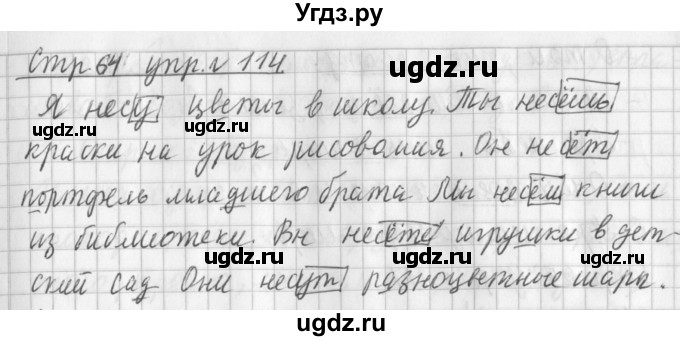 Угдз.ру
Стр 64 упр. 114
ugdz.ru
Я несу цветы в школу. Ты несёшь
ugdz.ru ugdz.ru
краски на урок рисования. Он несёт
портфель младшего брата Мы несём книги
ugdz.ru ugdz.ru
из библиотеки. Вн несёте игрушки в дет-
ский сад Они несут разноцветные шары.
ugdz.ru ugdz.ru
Угдз.ру